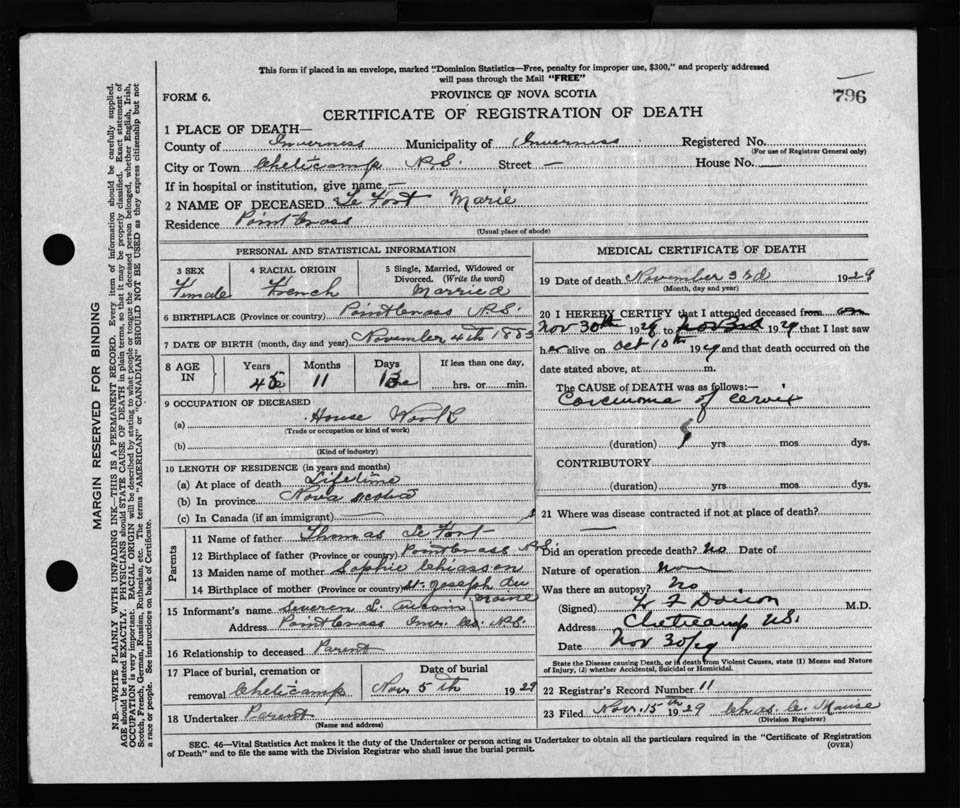 This form if placed in an envelope, marked "Dominion Statistics—Free, penalty for improper use, $300," and properly addressed
will pass through the Mail "FREE"
FORM 6.
PROVINCE OF NOVA SCOTIA
796
CERTIFICATE OF REGISTRATION OF DEATH
1 PLACE OF DEATH—
County of Inverness Municipality of Inverness Registered No.
(For use of Registrar General only)
City or Town Cheticamp N.S. Street — House No. —
If in hospital or institution, give name —
2 NAME OF DECEASED Le Fort Marie
Residence Point Cross
(Usual place of abode)
MARGIN RESERVED FOR BINDING
N.B.—WRITE PLAINLY WITH UNFADING INK—THIS IS A PERMANENT RECORD. Every item of information should be carefully supplied.
AGE should be stated EXACTLY. PHYSICIANS should STATE CAUSE OF DEATH in plain terms, so that it may be properly classified. Exact statement of
OCCUPATION is very important. RACIAL ORIGIN will be described by stating to what people or tongue the deceased person belonged, whether English, Irish,
Scotch, French, German, Russian, Ruthenian, etc. The terms "AMERICAN" or "CANADIAN" SHOULD NOT BE USED as they express citizenship but not
a race or people. See instructions on back of Certificate.
PERSONAL AND STATISTICAL INFORMATION
3 SEX
Female
4 RACIAL ORIGIN
French
5 Single, Married, Widowed or
Divorced. (Write the word)
Married
6 BIRTHPLACE (Province or country) Point Cross N.S.
7 DATE OF BIRTH (month, day and year) November 4th 1883
8 AGE IN
Years
45
Months
11
Days
If less than one day,
hrs. or min.
9 OCCUPATION OF DECEASED
(a) House Work
(Trade or occupation or kind of work)
(b)
(Kind of industry)
10 LENGTH OF RESIDENCE (in years and months)
(a) At place of death Lifetime
(b) In province Nova Scotia
(c) In Canada (if an immigrant)
Parents
11 Name of father Thomas Le Fort
12 Birthplace of father (Province or country) Point Cross N.S.
13 Maiden name of mother Sophie Chiasson
14 Birthplace of mother (Province or country) St. Joseph du
Maine
15 Informant's name Severen L. Aucoin
Address Point Cross Inv. Co. N.S.
16 Relationship to deceased Parent
17 Place of burial, cremation or
removal Cheticamp
Date of burial
Nov 5th 1929
18 Undertaker Parent
(Name and address)
MEDICAL CERTIFICATE OF DEATH
19 Date of death November 3rd 1929
(Month, day and year)
20 I HEREBY CERTIFY that I attended deceased from
Nov 30th 1929 to Nov 3rd 1929 that I last saw
her alive on Oct 10th 1929 and that death occurred on the
date stated above, at m.
The CAUSE OF DEATH was as follows:—
Carcinoma of cervix
(duration) yrs mos dys.
CONTRIBUTORY
(duration) yrs mos dys.
21 Where was disease contracted if not at place of death?
Did an operation precede death? No Date of
Nature of operation None
Was there an autopsy? No
(Signed) M.D.
Address Cheticamp N.S.
Date Nov 30/29
State the Disease causing Death, or in death from Violent Causes, state (1) Means and Nature
of Injury, (2) whether Accidental, Suicidal or Homicidal.
22 Registrar's Record Number 11
23 Filed Nov. 15th 1929 Chas. C.
(Division Registrar)
SEC. 46—Vital Statistics Act makes it the duty of the Undertaker or person acting as Undertaker to obtain all the particulars required in the "Certificate of Registration
of Death" and to file the same with the Division Registrar who shall issue the burial permit.
(OVER)